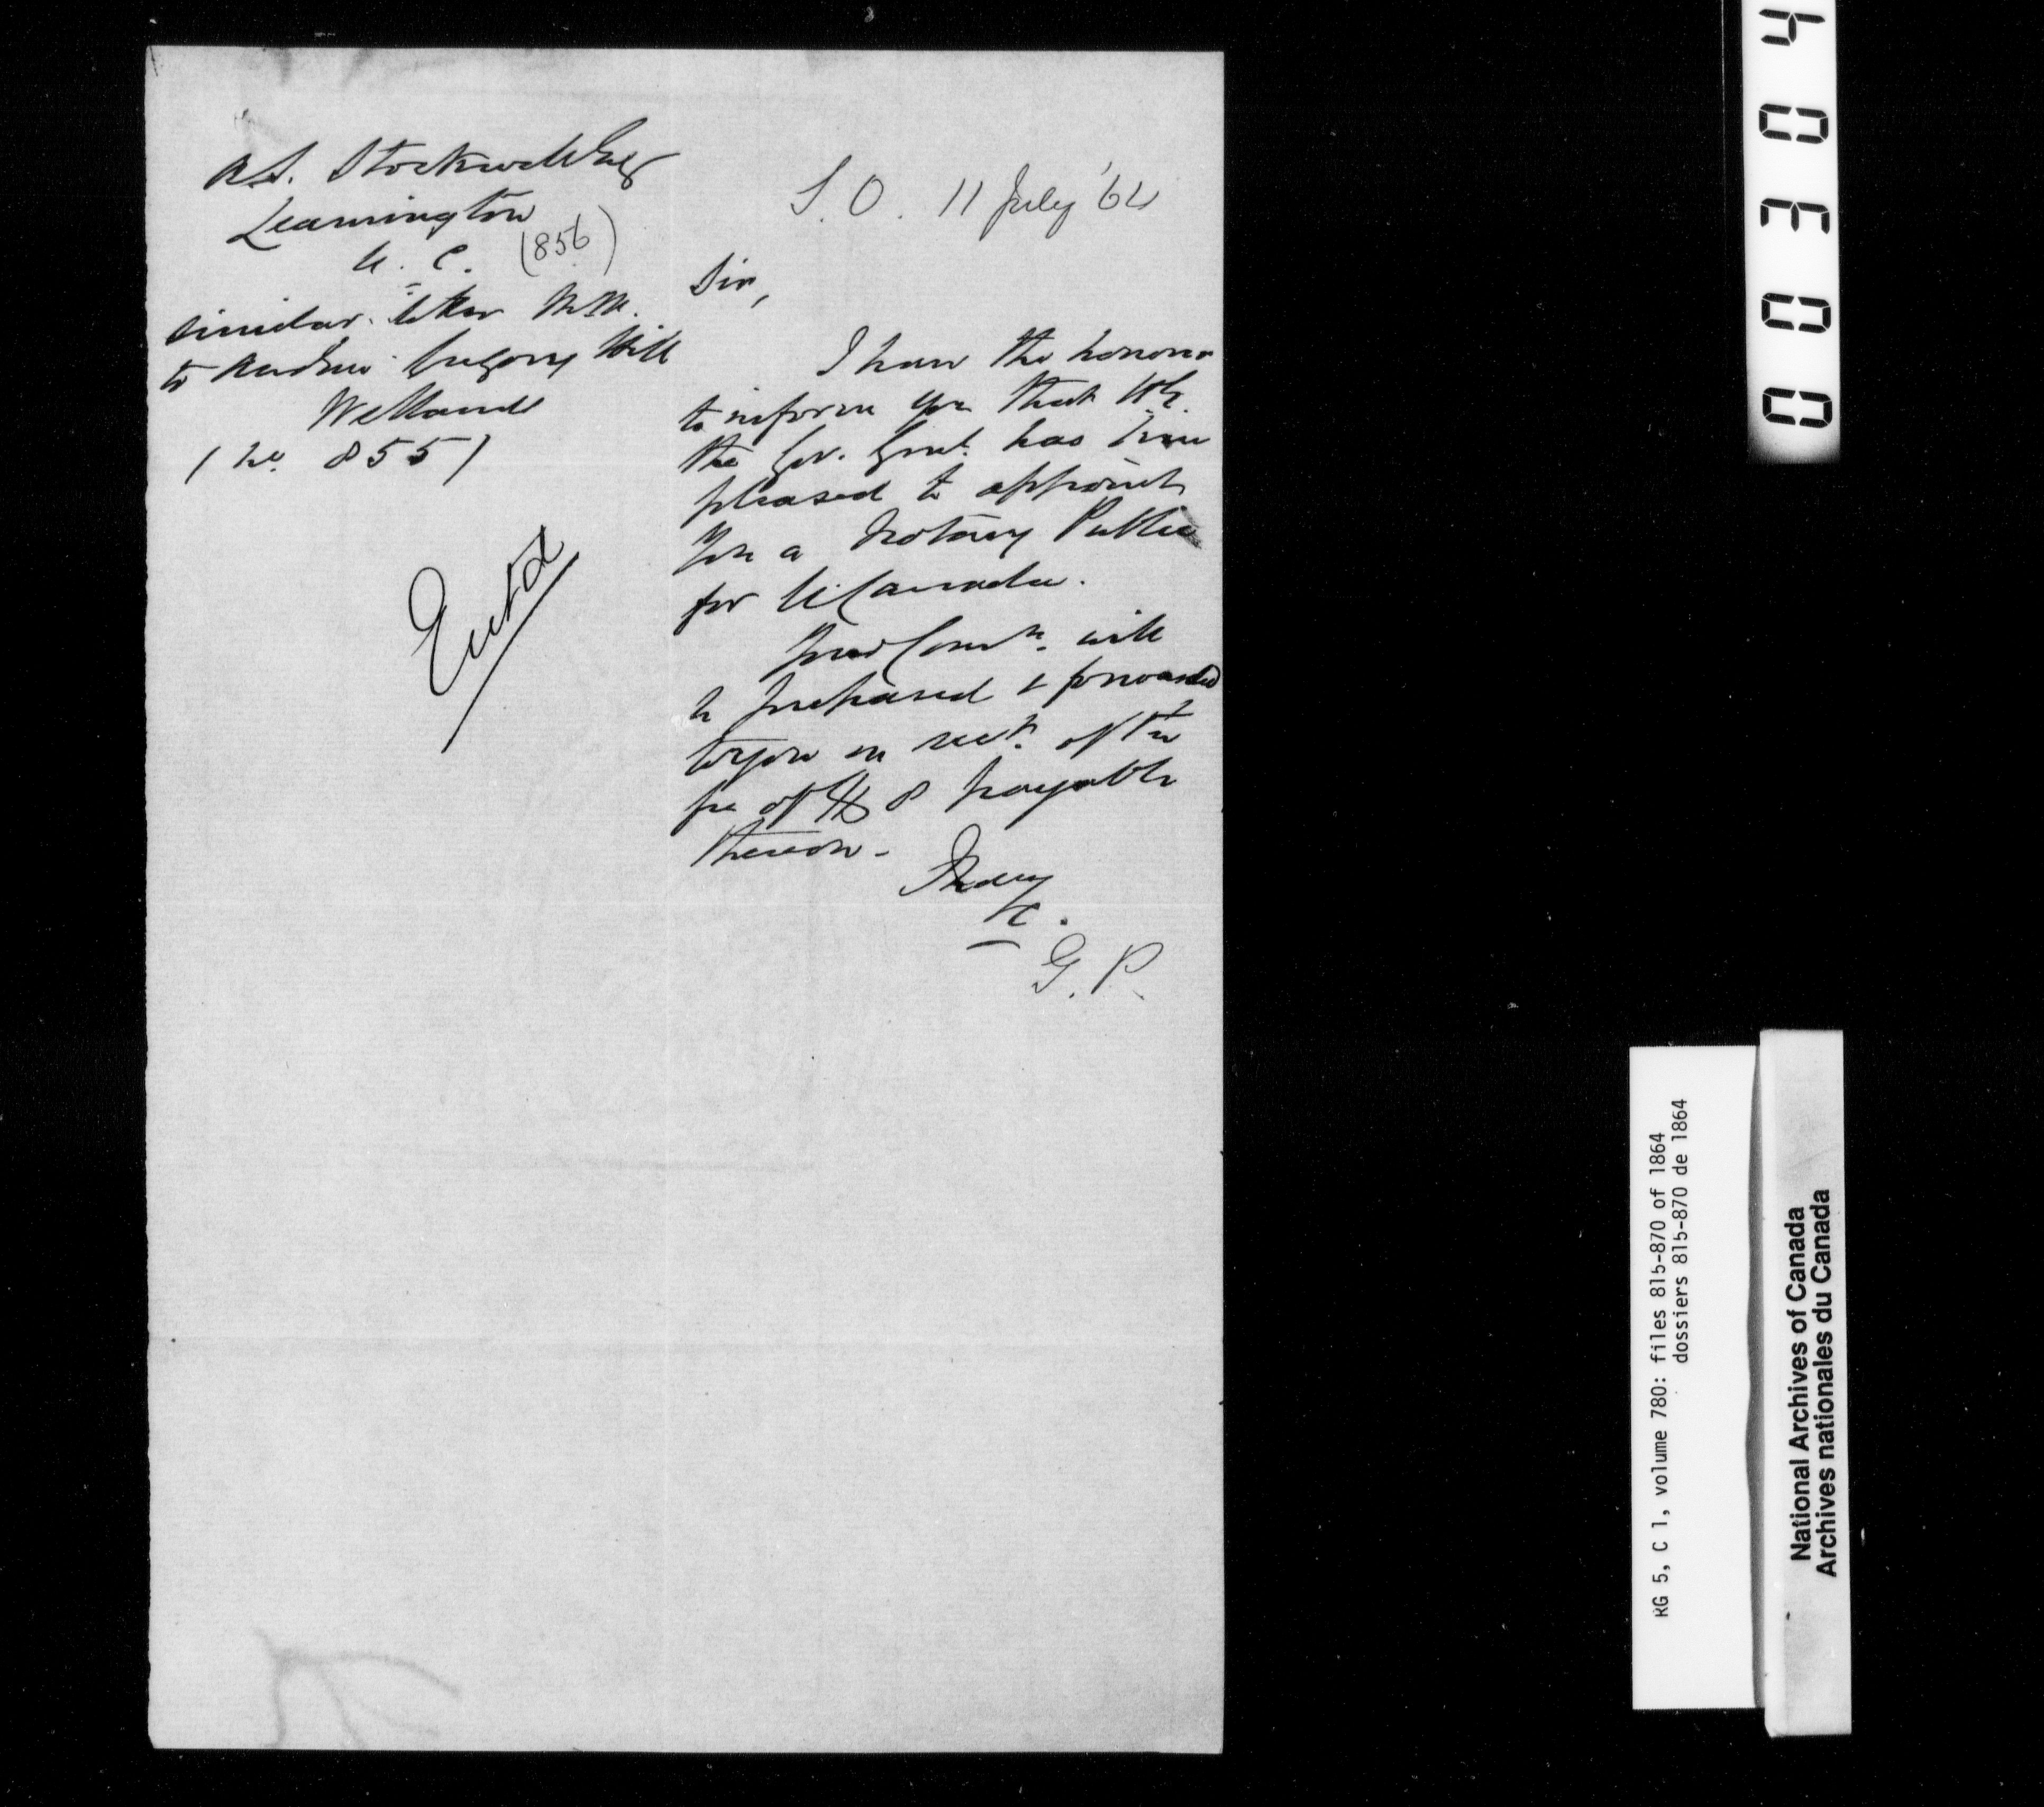 A.S. Stockwell Esq
Leamington
U. C. (856)
similar letter M.M.
to Andrew Gregory Hill
Welland
(No 855)
Entd
S. O. 11 July '64
Sir,
I have the honour
to inform you that H.E.
the Gov. Genl. has been
pleased to appoint
you a Notary Public
for U. Canada.
Your Comn. will
be prepared & forwarded
to you on rect. of the
fee of $ 8 payable
thereon -
I have
&c.
G. P.
0 0 3 0 4
RG 5, C 1, volume 780: files 815-870 of 1864
dossiers 815-870 de 1864
National Archives of Canada
Archives nationales du Canada